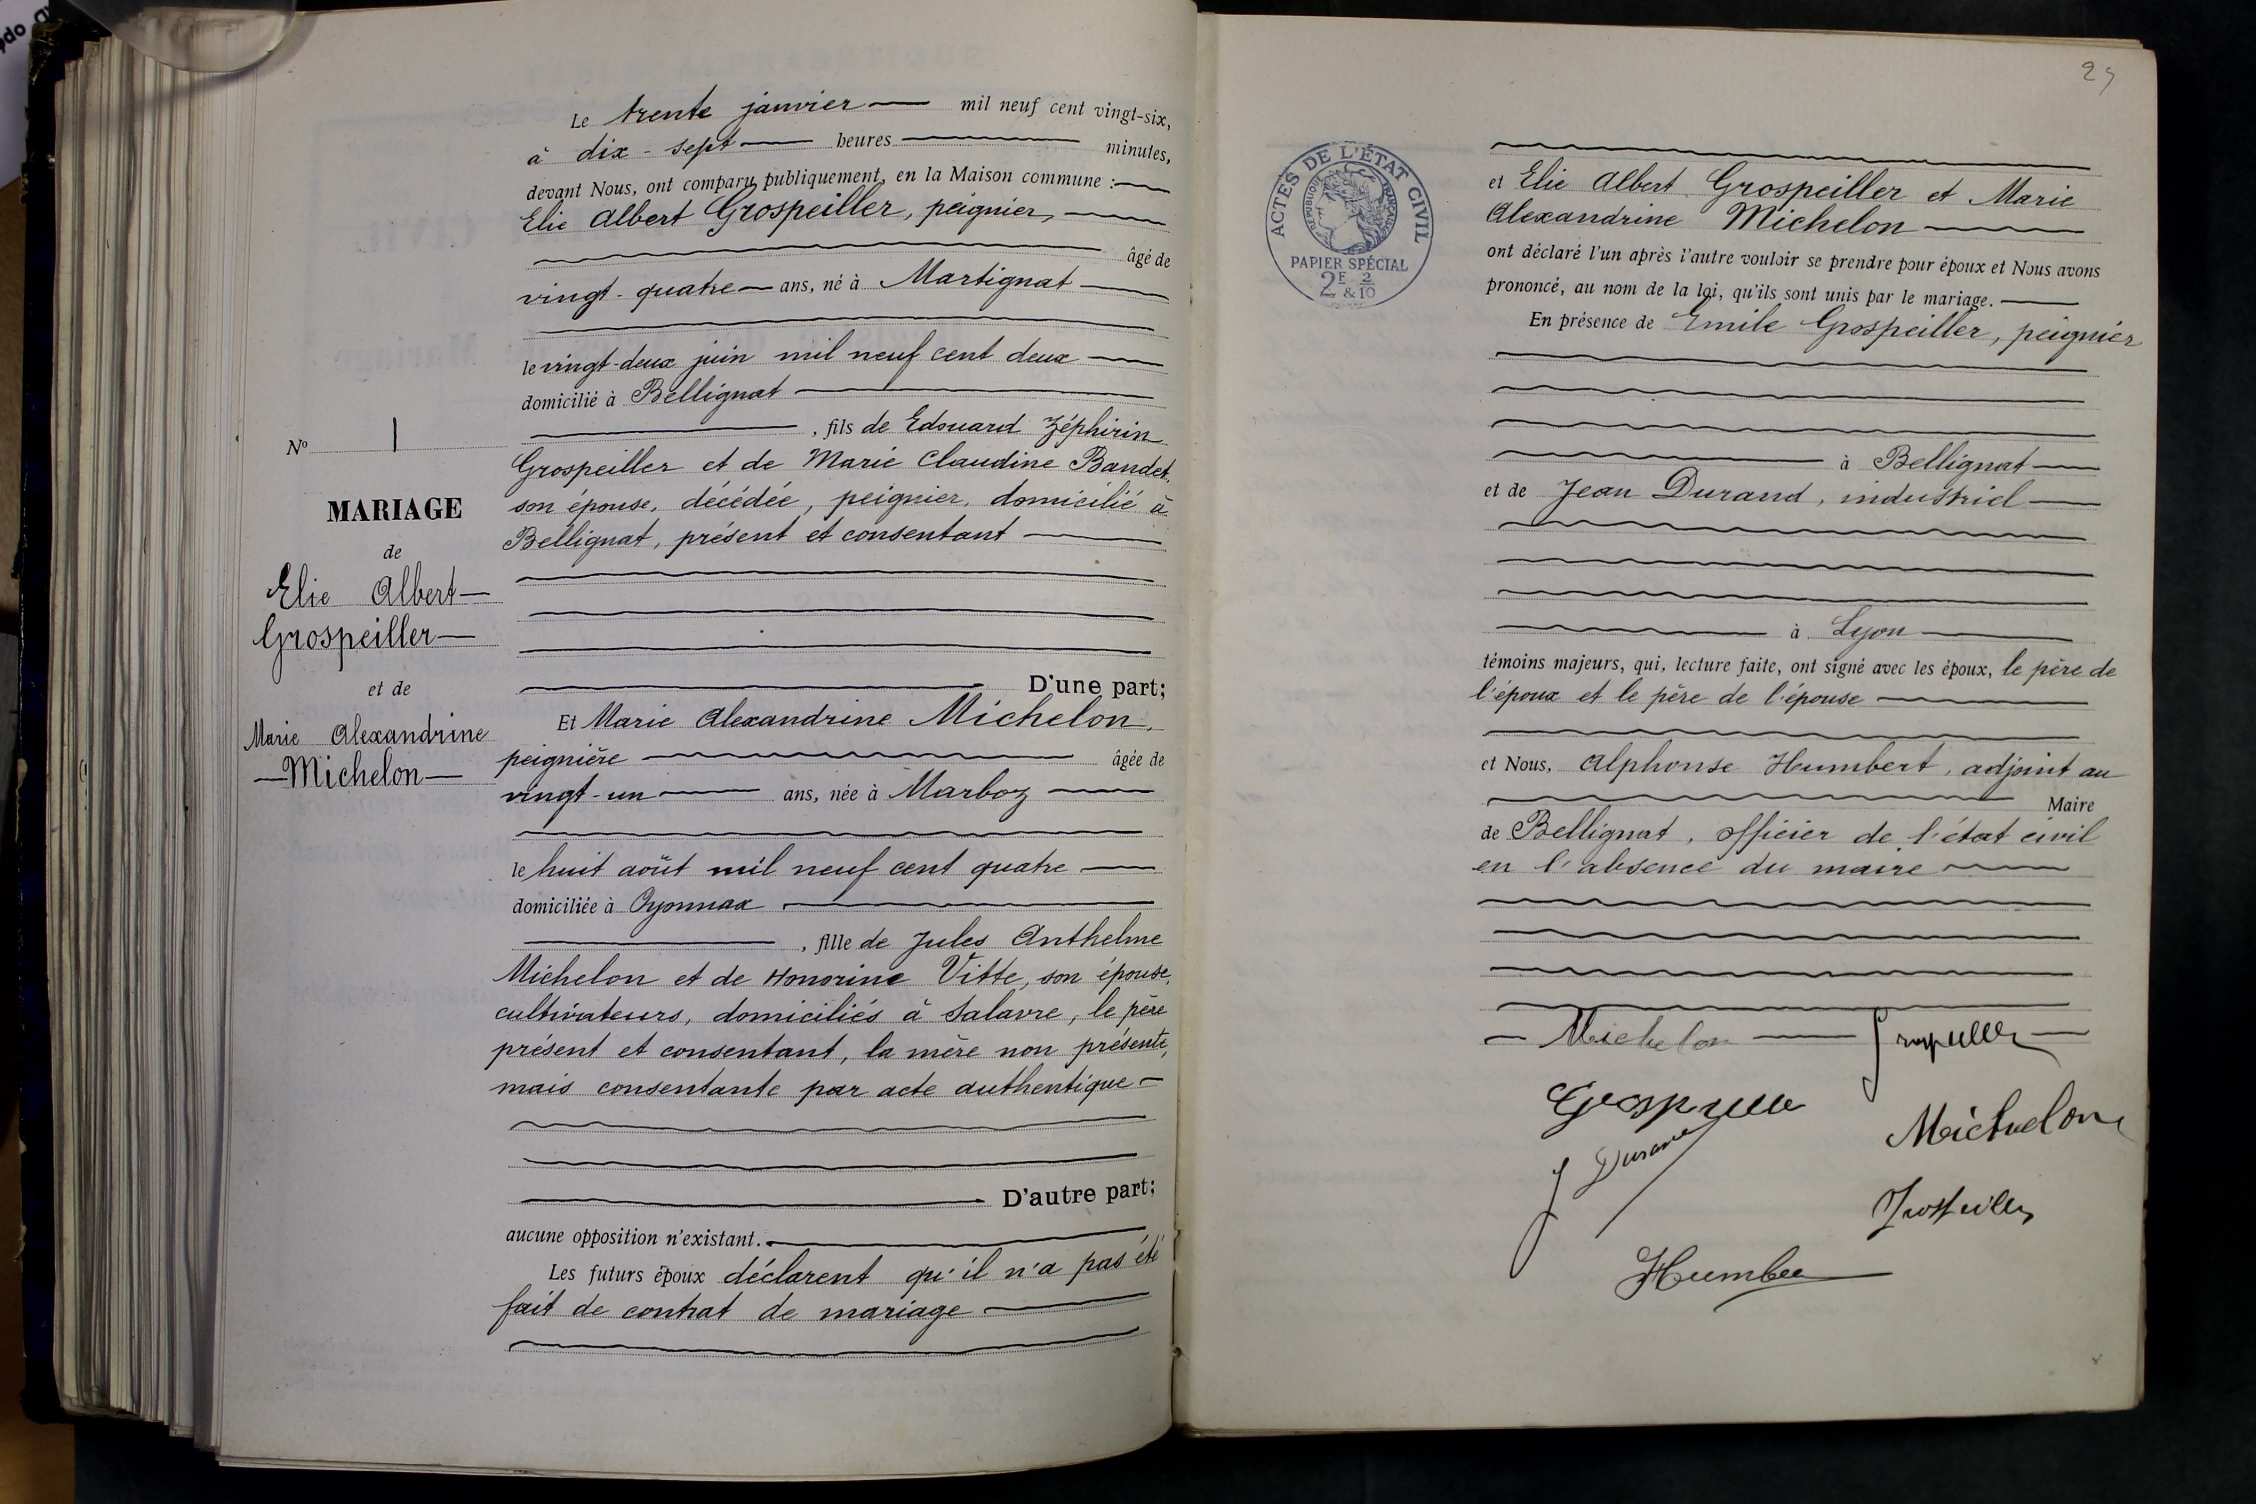 Le trente janvier mil neuf cent vingt-six,
à dix-sept heures minutes,
devant Nous, ont comparu publiquement, en la Maison commune :
Elie Albert Grospeiller, peignier,
âgé de
vingt-quatre ans, né à Martignat
le vingt-deux juin mil neuf cent deux
domicilié à Bellignat
, fils de Edouard Zéphirin
Grospeiller et de Marie Claudine Bandet,
son épouse, décédée, peignier, domicilié à
Bellignat, présent et consentant
D'une part;
Et Marie Alexandrine Michelon,
peignière âgée de
vingt-un ans, née à Marboz
le huit août mil neuf cent quatre
domiciliée à Oyonnax
, fille de Jules Anthelme
Michelon et de Honorine Vitte, son épouse,
cultivateurs, domiciliés à Salavre, le père
présent et consentant, la mère non présente,
mais consentante par acte authentique
D'autre part;
aucune opposition n'existant.
Les futurs époux déclarent qu'il n'a pas été
fait de contrat de mariage
No 1
MARIAGE
de
Elie Albert
Grospeiller
et de
Marie Alexandrine
Michelon
ACTES DE L'ÉTAT CIVIL
RÉPUBLIQUE FRANÇAISE
PAPIER SPÉCIAL
2F & 2/10
et Elie Albert Grospeiller et Marie
Alexandrine Michelon
ont déclaré l'un après l'autre vouloir se prendre pour époux et Nous avons
prononcé, au nom de la loi, qu'ils sont unis par le mariage.
En présence de Emile Grospeiller, peignier
à Bellignat
et de Jean Durand, industriel
à Lyon
témoins majeurs, qui, lecture faite, ont signé avec les époux, le père de
l'époux et le père de l'épouse
et Nous, Alphonse Humbert, adjoint au
Maire
de Bellignat, officier de l'état civil
en l'absence du maire
Michelon Grospeiller
Grospeiller
J Durand
Michelon
Grospeiller
Humbert